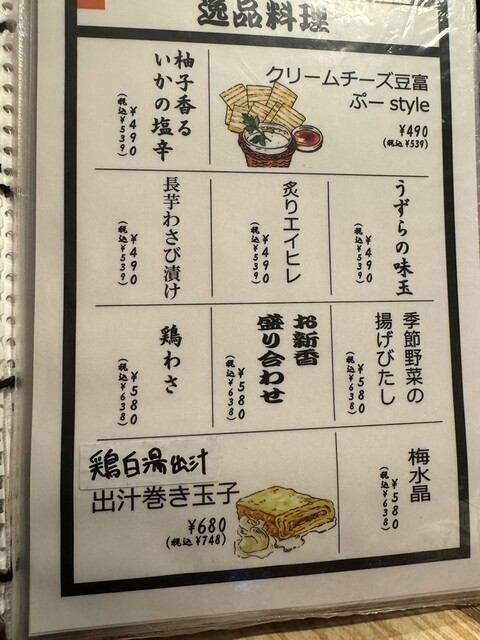 逸品料理
クリームチーズ豆富
ぷー style
¥490
(税込 ¥539)
柚子香る
いかの塩辛
¥490
(税込¥539)
うずらの味玉
¥490
(税込¥539)
炙りエイヒレ
¥490
(税込¥539)
長芋わさび漬け
¥490
(税込¥539)
季節野菜の
揚げびたし
¥580
(税込¥638)
お新香
盛り合わせ
¥580
(税込¥638)
鶏わさ
¥580
(税込¥638)
梅水晶
¥580
(税込¥638)
鶏白湯出汁
出汁巻き玉子
¥680
(税込 ¥748)